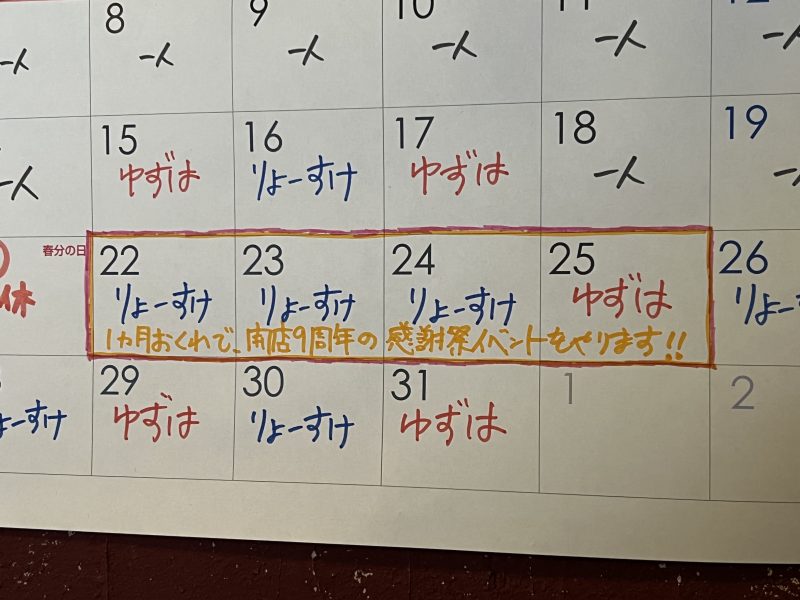 8 9 10 11 12
一人 一人 一人 一人 一人 一人
15 16 17 18 19
一人 ゆずは りょーすけ ゆずは 一人 一人
春分の日 22 23 24 25 26
休 りょーすけ りょーすけ りょーすけ ゆずは りょー
1ヵ月おくれで、開店9周年の感謝祭イベントをやります!!
29 30 31 1 2
ーすけ ゆずは りょーすけ ゆずは